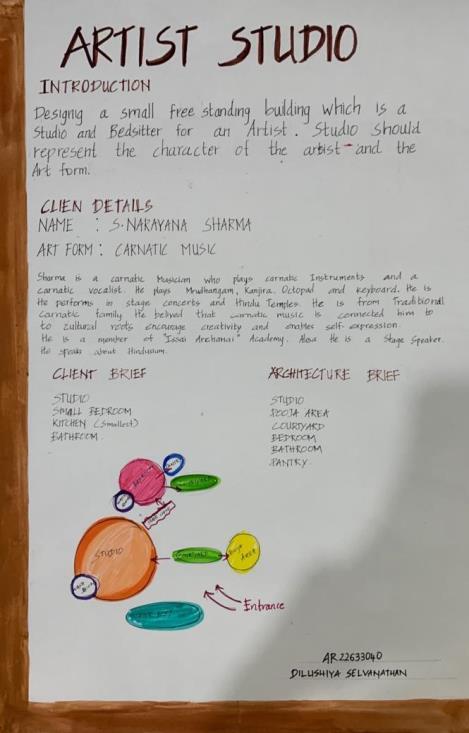 ARTIST STUDIO
INTRODUCTION
Designg a small free standing building which is a
Studio and Bedsitter for an Artist. Studio should
represent the character of the artist and the
Art form.
CLIEN DETAILS
NAME : S.NARAYANA SHARMA
ART FORM : CARNATIC MUSIC
Sharma is a carnatic Musician who plays carnatic Instruments and a
carnatic vocalist. He plays Mrudhangam, Kanjira, Octopad and keyboard. He is
He performs in stage concerts and Hindu Temples. He is from Traditional
carnatic family. He belived that carnatic music is connected him to
to cultural roots encourage creativity and enables self-expression.
He is a member of "Issai Archanai" Academy. Also He is a Stage Speaker.
He speaks about Hinduism.
CLIENT BRIEF
STUDIO
SMALL BEDROOM
KITCHEN (Smallest)
BATHROOM.
ARCHITECTURE BRIEF
STUDIO
POOJA AREA
COURTYARD
BEDROOM
BATHROOM
PANTRY.
STUDIO
Entrance
AR22633040
DILUSHIYA SELVANATHAN